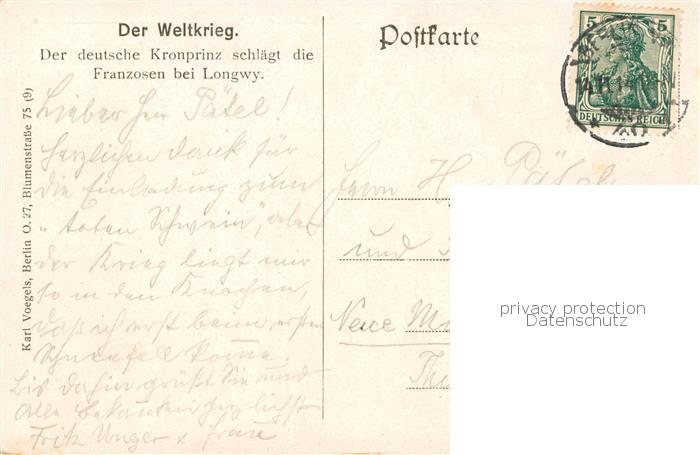 Der Weltkrieg.
Der deutsche Kronprinz schlägt die
Franzosen bei Longwy.
Postkarte
5 5
DEUTSCHES REICH
Karl Voegels, Berlin O. 27, Blumenstraße 75 (9)
Lieber Herr Pätel!
Herzlichen Dank für
die Einladung zum
"toten Schwein", aber
der Krieg liegt mir
so in den Knochen,
daß ich erst beim ersten
Schneefall komme.
Bis dahin grüßt Sie und
Alle Bekannten herzlichst
Fritz Unger u. Frau
Herrn H. Pätel
und
Neue
privacy protection
Datenschutz